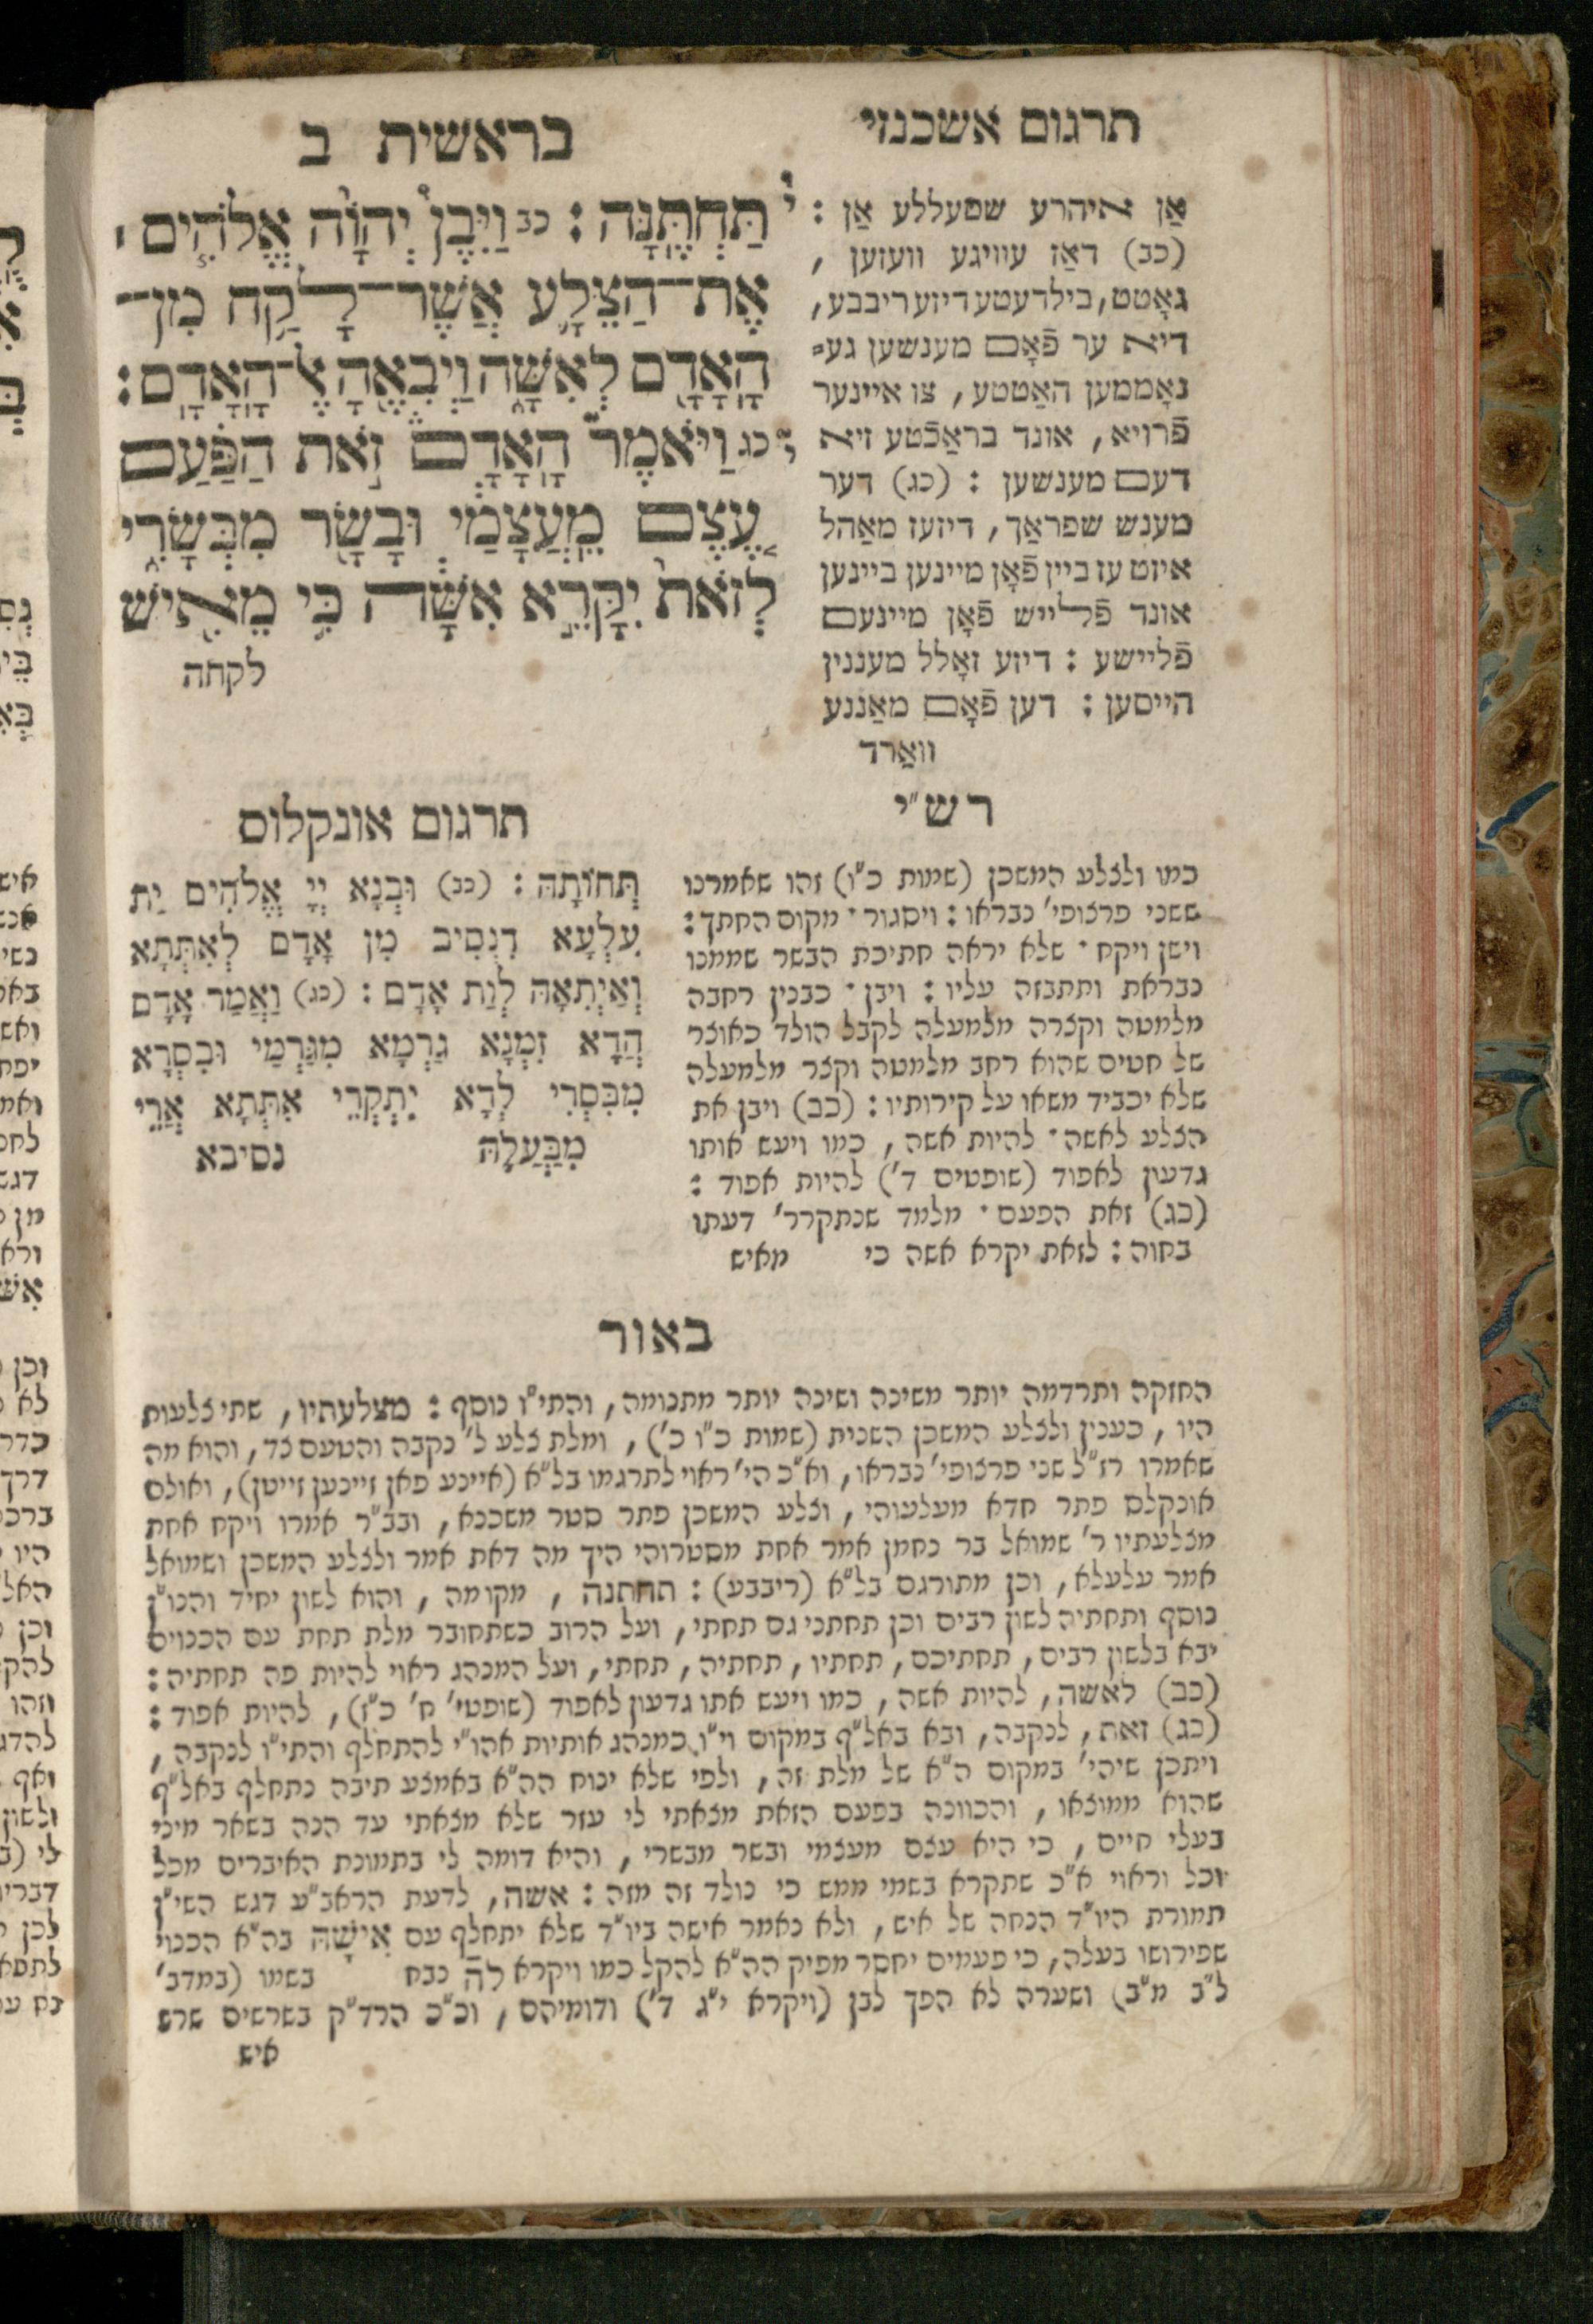 תרגום אשכנזי
בראשית ב
אַן איהרע שטעללע אַן :
(כב) דאַז עוויגע וועזען ,
גאָטט, בילדעטע דיזע ריבבע,
דיא ער פֿאָם מענשען גע=
נאָממען האַטטע, צו איינער
פֿרויא, אונד בראַכֿטע זיא
דעם מענשען : (כג) דער
מענש שפראַך, דיזעז מאַהל
איזט עז ביין פֿאָן מיינען ביינען
אונד פֿלייש פֿאָן מיינעם
פֿליישע : דיזע זאָלל מעננין
הייסען : דען פֿאָם מאַננע
וואַרד
תַּחְתֶּֽנָּה : כב וַיִּבֶן֩ יְהוָ֨ה אֱלֹהִ֧ים ׀
אֶֽת־הַצֵּלָ֛ע אֲשֶׁר־לָקַ֥ח מִן־
הָֽאָדָ֖ם לְאִשָּׁ֑ה וַיְבִאֶ֖הָ אֶל־הָֽאָדָֽם :
כג וַיֹּאמֶר֮ הָֽאָדָם֒ זֹ֣את הַפַּ֗עַם
עֶ֚צֶם מֵֽעֲצָמַ֔י וּבָשָׂ֖ר מִבְּשָׂרִ֑י
לְזֹאת֙ יִקָּרֵ֣א אִשָּׁ֔ה כִּ֥י מֵאִ֖ישׁ
לקחה
רש"י
כמו ולצלע המשכן (שמות כ"ו) זהו שאמרנו
ששני פרצופי' נבראו : ויסגור · מקום החתך :
וישן ויקח · שלא יראה חתיכת הבשר שממנו
נבראת ותתבזה עליו : ויבן · כבנין רחבה
מלמטה וקצרה מלמעלה לקבל הולד כאוצר
של חטים שהוא רחב מלמטה וקצר מלמעלה
שלא יכביד משאו על קירותיו : (כב) ויבן את
הצלע לאשה · להיות אשה , כמו ויעש אותו
גדעון לאפוד (שופטים ד') להיות אפוד :
(כג) זאת הפעם · מלמד שנתקרר' דעתו
בחוה : לזאת יקרא אשה כי מאיש
תרגום אונקלוס
תְּחוֹתָהּ : (כב) וּבְנָא יְיָ אֱלֹהִים יַת
עִלְעָא דִנְסִיב מִן אָדָם לְאִתְּתָא
וְאַיְתִאָהּ לְוַת אָדָם : (כג) וַאֲמַר אָדָם
הָדָא זִמְנָא גַרְמָא מִגַּרְמַי וּבִסְרָא
מִבִּסְרִי לְדָא יִתְקְרֵי אִתְּתָא אֲרֵי
מִבַּעֲלַהּ נסיבא
באור
החזקה ותרדמה יותר משינה ושינה יותר מתנומה, והתי"ו נוסף : מצלעתיו, שתי צלעות
היו , כענין ולצלע המשכן השנית (שמות כ"ו כ') , ומלת צלע ל' נקבה והטעם צד, והוא מה
שאמרו רז"ל שני פרצופי' נבראו, וא"כ הי' ראוי לתרגמו בל"א (איינע פאן זיינען זייטן), ואולם
אונקלס פתר חדא מעלעוהי , וצלע המשכן פתר סטר משכנא, ובב"ר אמרו ויקח אחת
מצלעתיו ר' שמואל בר נחמן אמר אחת מסטרוהי היך מה דאת אמר ולצלע המשכן ושמואל
אמר עלעלא, וכן מתורגם בל"א (ריבבע) : תחתנה , מקומה , והוא לשון יחיד והנו"ן
נוסף ותחתיה לשון רבים וכן תחתני גם תחתי, ועל הרוב כשתחובר מלת תחת עם הכנוים
יבא בלשון רבים, תחתיכם, תחתיו, תחתיה, תחתי, ועל המנהג ראוי להיות פה תחתיה :
(כב) לאשה, להיות אשה, כמו ויעש אתו גדעון לאפוד (שופטי' ח' כ"ז), להיות אפוד :
(כג) זאת, לנקבה, ובא באל"ף במקום וי"ו כמנהג אותיות אהו"י להתחלף והתי"ו לנקבה,
ויתכן שיהי' במקום ה"א של מלת זה, ולפי שלא ינוח הה"א באמצע תיבה נתחלף באל"ף
שהוא ממוצאו , והכוונה בפעם הזאת מצאתי לי עזר שלא מצאתי עד הנה בשאר מיני
בעלי חיים, כי היא עצם מעצמי ובשר מבשרי, והיא דומה לי בתמונת האיברים מכל
וכל וראוי א"כ שתקרא בשמי ממש כי נולד זה מזה : אשה, לדעת הראב"ע דגש השי"ן
תמורת היו"ד הנחה של איש, ולא נאמר אישה ביו"ד שלא יתחלף עם אִישָׁהּ בה"א הכנוי
שפירושו בעלה, כי פעמים יחסר מפיק הה"א להקל כמו ויקרא לָהּ נבח בשמו (במדב'
ל"ב מ"ב) ושערה לא הפך לבן (ויקרא י"ג ד') ודומיהם, וכ"כ הרד"ק בשרשים שרש
איש